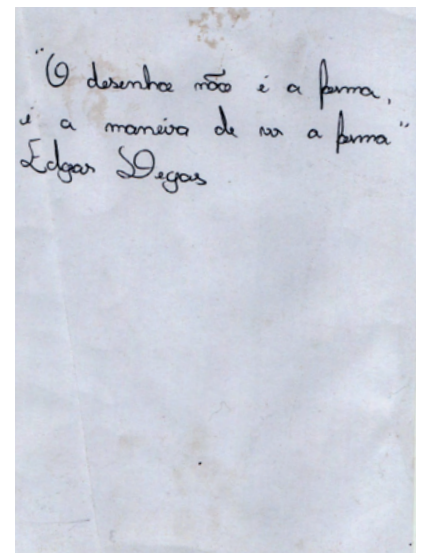 "O desenho não é a forma,
é a maneira de ver a forma"
Edgar Degas